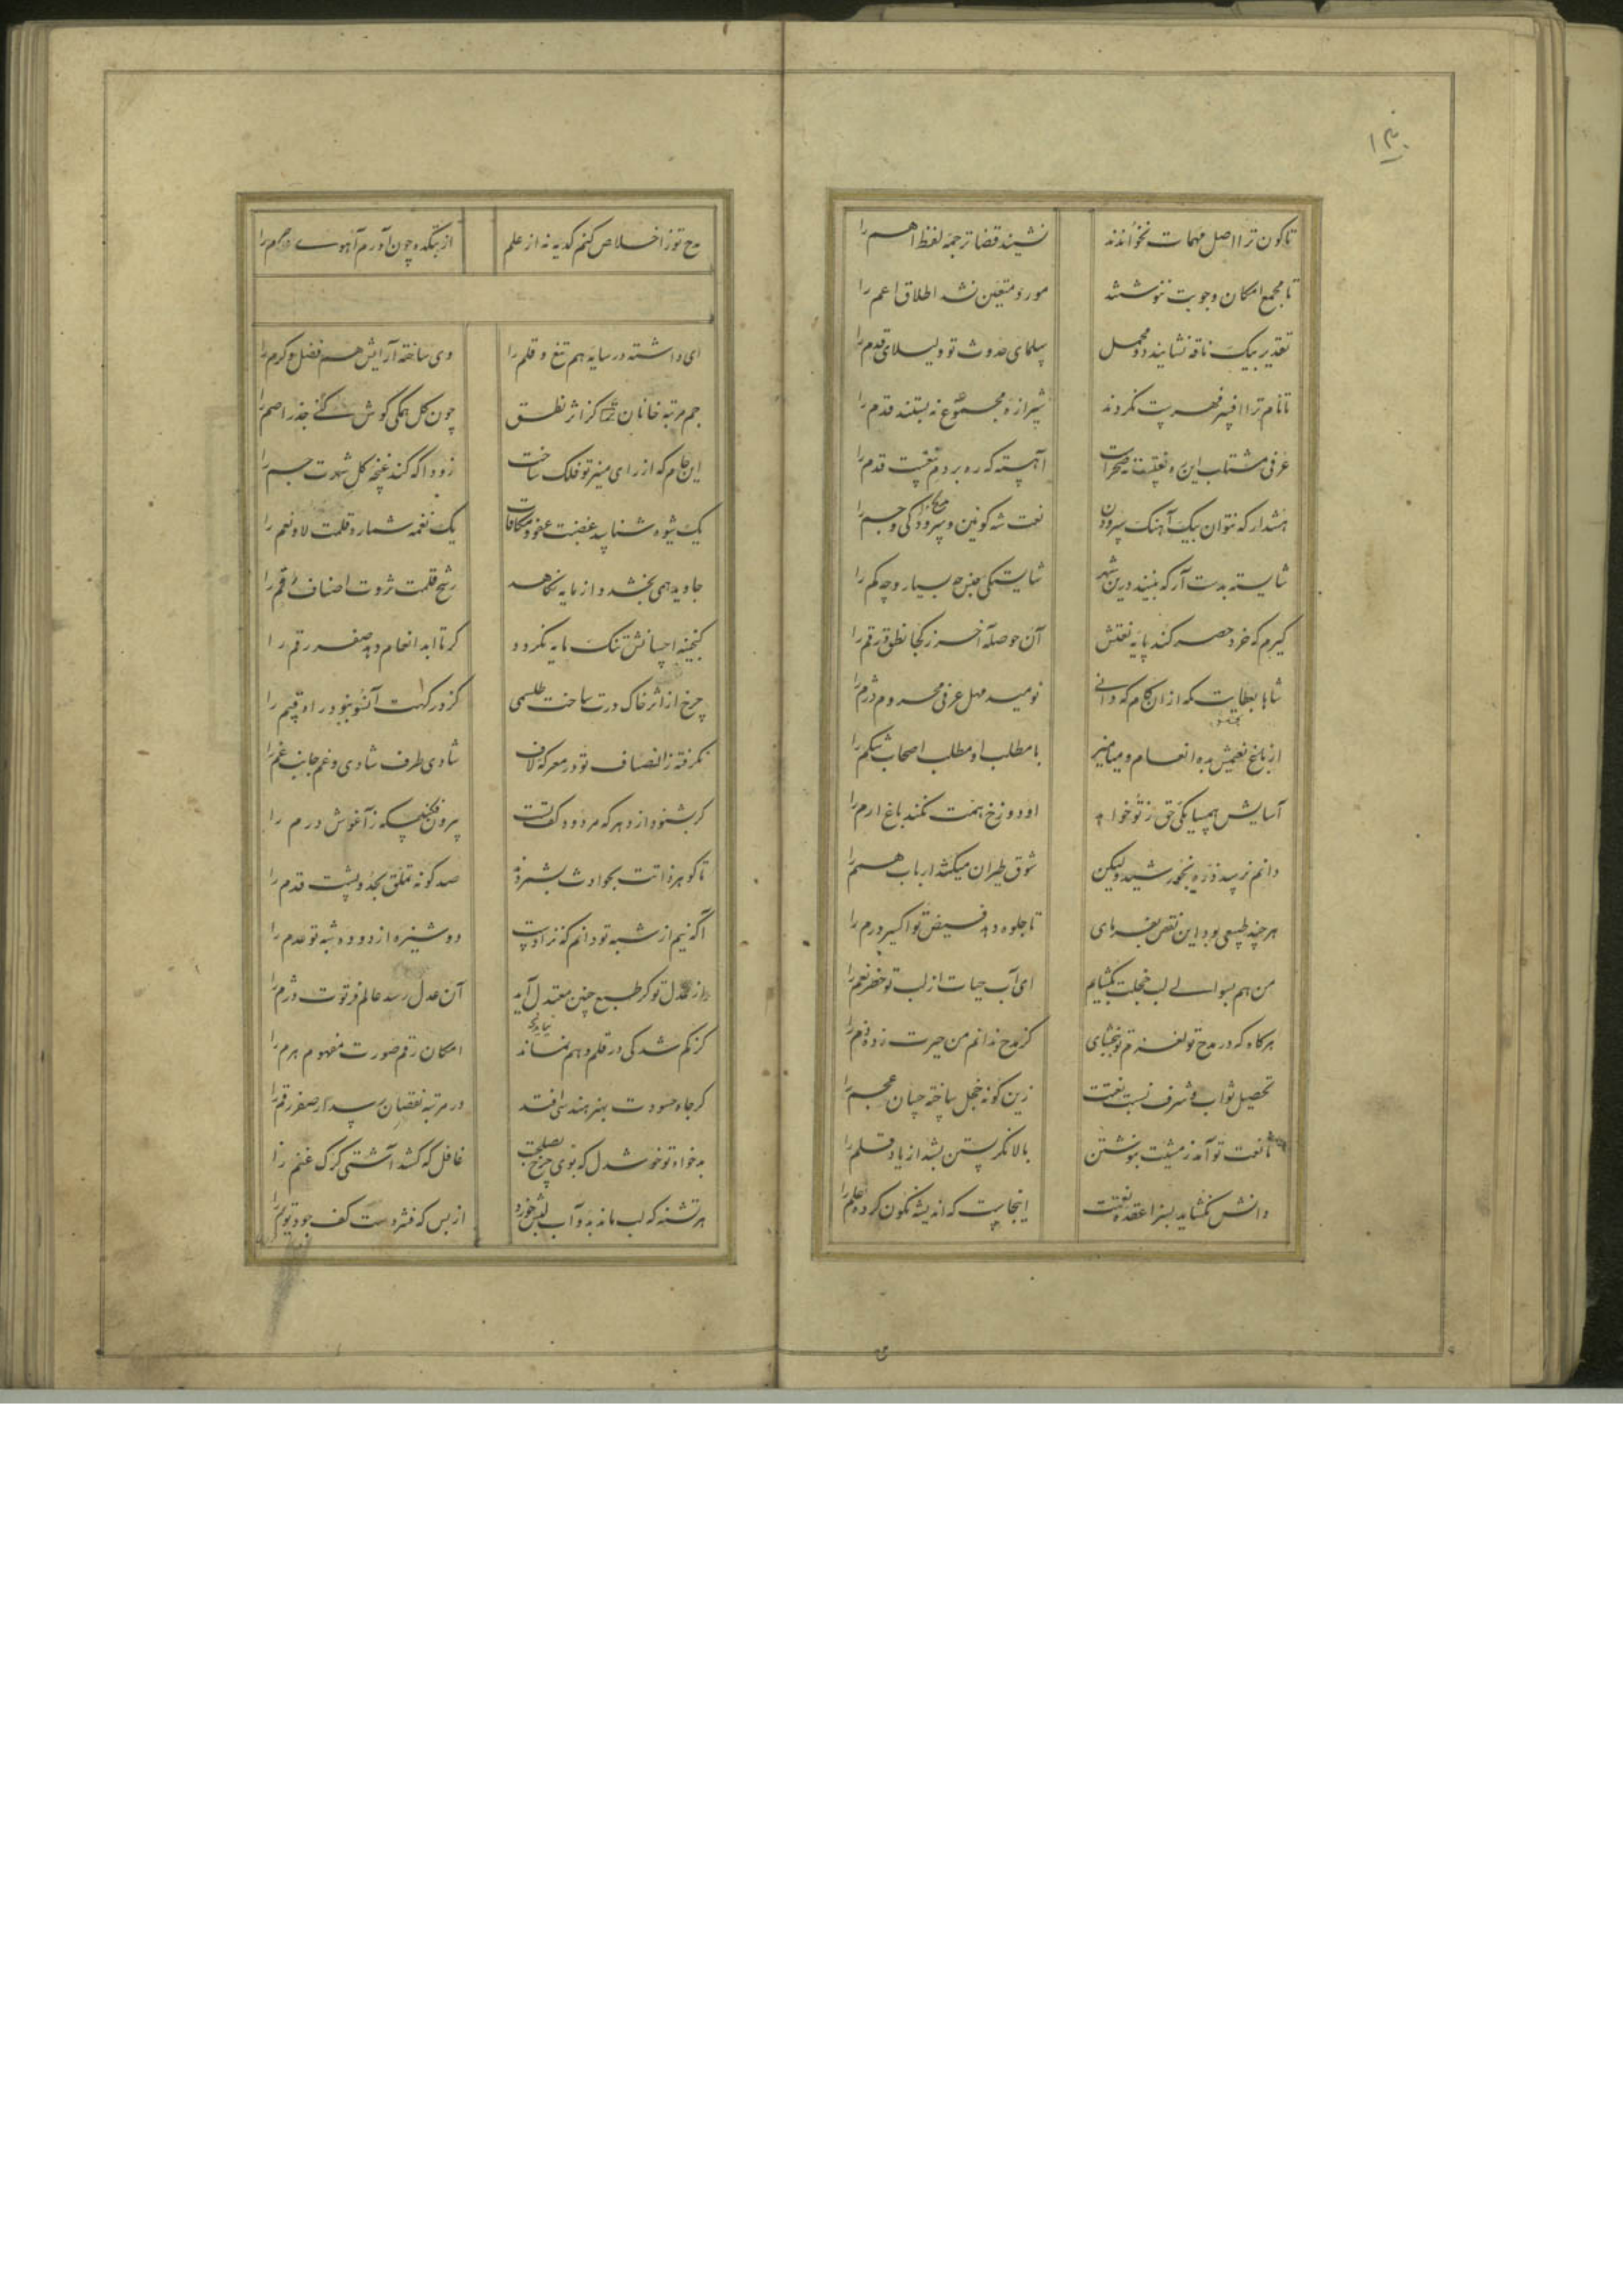 ۱۳۰
تا کون ترا اصل مهمات نخواندند نشنید قضا ترجمه لفظ اهم را
تا مجمع امکان و وجوبت ننوشتند مورد متعین نشد اطلاق اعم را
تقدیر بیک ناقه نشانید دو محمل سلمای حدوث تو و لیلای قدم را
تا نام ترا افسر فهرست نکردند شیرازه مجموعه نه بستند قدم را
عرفی مشتاب این ره نعتست نه صحراست آهسته که ره بر دم تیغست قدم را
هشدار که نتوان بیک آهنگ سرودن نعت شه کونین و مدیح کی و جم را
شایسته بدست آر که بینند درین شهر شایستگی جنس چه بسیار و چه کم را
گیرم که خرد حصر کند پایه نعتش آن حوصله آخر ز کجا نطق و رقم را
شاها بعطایت که از ان کام که دانی نومید مهل عرفی محروم دژم را
از باغ نعیمش بده انعام و میامیز با مطلب او مطلب اصحاب شکم را
آسایش همسایگی حق ز تو خواهد او دوزخ همت نکند باغ ارم را
دانم نرسد ذره بخورشید ولیکن شوق طیران میکشد ارباب همم را
هرچند طبیعی بود این نقص بفرمای تا جلوه دهد فیض تو اکسیر درم را
من هم بسوالی لب خجلت بگشایم ای آب حیات از لب تو خضر نعم را
هرگاه که در مدح تو لغزم تو ببخشای کز مدح ندانم من حیرت زده ذم را
تحصیل ثواب و شرف نسبت نعتت زین گونه خجل ساخته حسان عجم را
تا نعت تو آمد ز مشیت بنوشتن بالا نگرستن بشد از یاد قلم را
دانش نگشاید بسزا عقده نعتت اینجاست که اندیشه نگون کرده علم را
مدح تو ز اخلاص کنم گدیه نه از علم از بتکده چون آورم آهوی حرم را
ای داشته در سایه هم تیغ و قلم را وی ساخته آرایش هم فضل و کرم را
جم مرتبه خانخانان کز اثر نطق چون گل همگی گوش کنی جذر اصم را
این جام که از رای منیر تو فلک ساخت زودا که کند غنچه گل شهرت جم را
یک شیوه شناسد غضبت عفو و مکافات یک نغمه شمارد قلمت لا و نعم را
جاوید همی بخشد و از مایه نکاهد رشح قلمت ثروت اصناف امم را
گنجینه احسانش تنک مایه نگردد گر تا ابد انعام دهد صفر رقم را
چرخ از اثر خاک درت ساخت طلسمی
نگرفته ز انصاف تو در معرکه لاف شادی طرف شادی و غم جانب غم را
گر بشنود آوازه هر که مردود کف تست بیرون فکند سکه ز آغوش درم را
تا گوهر ذاتت بحوادث بشمردند صد گونه تملق بحدوثست قدم را
آگه نیم از شبه تو دانم که نزادست دوشیزه از دوده شبه تو عدم را
از عدل تو گر طبع چنین معتدل آید آن عدل رسد عالم فرتوت دژم را
کز کم شدگی در قلم وهم نماند امکان رقم صورت مفهوم هرم را
گر جاه حسودت بهنر هندسی افتد در مرتبه نقصان رسد از صفر رقم را
بدخواه تو خوشدل که بوی چرخ بصلحست غافل که کشد آشتی گرگ غنم را
هر تشنه که لب ماند بدو آب بقا خورد از بس که فشردست کف جود تو یم را